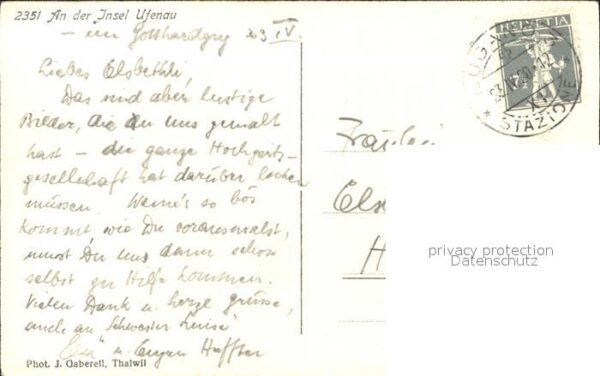 2351 An der Insel Ufenau
- im Gotthardzug 23 IV.
Liebes Elsbethli,
Das sind aber lustige
Bilder, die du uns gemalt
hast - die ganze Hochzeits-
gesellschaft hat darüber lachen
müssen. Wenn's so bös
kommt, wie Du voraus malst,
musst Du uns dann schon
selbst zu Hilfe kommen.
Vielen Dank u. herzl. grüsse,
auch an Schwester Luise
u. Eugen Haffter
Phot. J. Gaberell, Thalwil
HELVETIA
STAZIONE
Fräulein
Els
H
privacy protection
Datenschutz